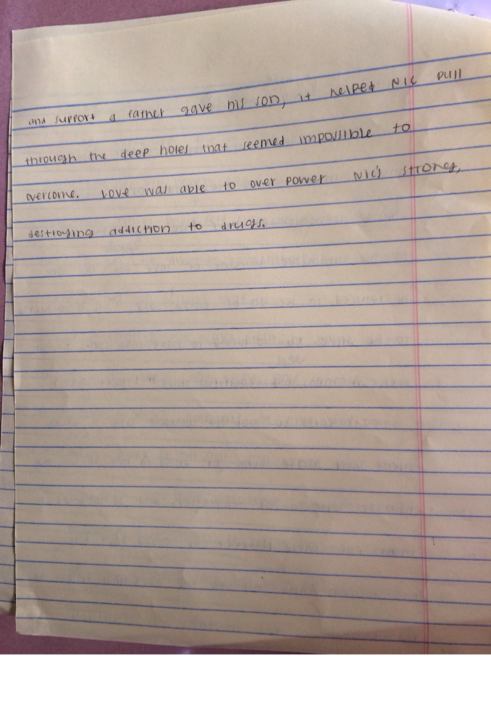 and support a father gave his son, it helped Nic pull
through the deep holes that seemed impossible to
overcome. Love was able to over power Nic's strong,
destroying addiction to drugs.